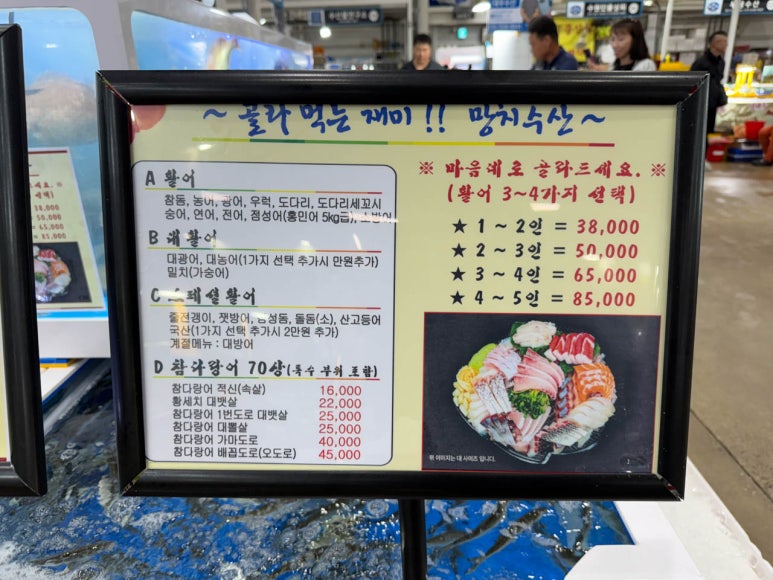 ~ 골라 먹는 재미!! 망치수산 ~
A 활어
참돔, 농어, 광어, 우럭, 도다리, 도다리세꼬시
숭어, 연어, 전어, 점성어(홍민어 5kg급),
B 대활어
대광어, 대농어(1가지 선택 추가시 만원추가)
밀치(가숭어)
C 스페셜활어
줄전갱이, 잿방어, 감성돔, 돌돔(소), 산고등어
국산(1가지 선택 추가시 2만원 추가)
계절메뉴 : 대방어
D 참다랑어 70상(특수 부위 포함)
참다랑어 적신(속살) 16,000
황세치 대뱃살 22,000
참다랑어 1번도로 대뱃살 25,000
참다랑어 대뽈살 25,000
참다랑어 가마도로 40,000
참다랑어 배꼽도로(오도로) 45,000
※ 마음대로 골라드세요. ※
(활어 3~4가지 선택)
★ 1 ~ 2인 = 38,000
★ 2 ~ 3인 = 50,000
★ 3 ~ 4인 = 65,000
★ 4 ~ 5인 = 85,000
위 이미지는 대 사이즈 입니다.
드세요. ※
선택)
38,000
50,000
65,000
85,000